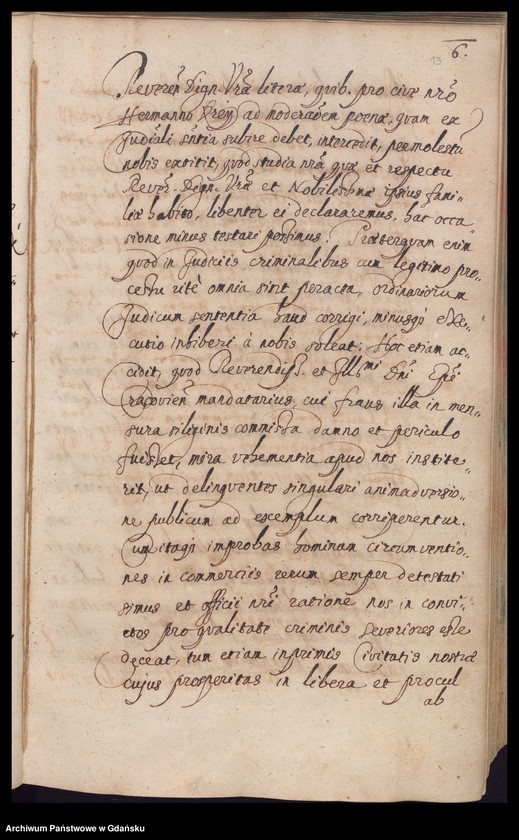 6.
13
Reverēn Dign. Vrā literæ, quib. pro cive nrō
Hermanno Frey ad moderaōem poenæ, quam ex
Judiāli sn̄tia subire debet, intercedit, permolestū
nobis extitit, quod studia nrā quæ et respectu
Revern̄. Dign. Vræ et Nobilissimæ ipsius fami„
liæ habito, libenter ei declararemus, hac occa„
sione minus testari possimus. Præterquam enim
quod in Judiciis criminalibus cum legitimo pro„
cessu ritè omnia sint peracta, ordinariorum
Judicum sententia haud corrigi, minusqȝ exe„
cutio inhiberi à nobis soleat: Hoc etiam ac„
cidit, quod Reverendiss. et Illmi Dn̄i Epī
Cracovien̄ mandatarius, cui fraus illa in men„
sura siliginis commissa damno et periculo
fuisset, mira vehementia apud nos institue„
rit, ut delinquentes singulari animadversio„
ne publicum ad exemplum corriperentur.
Cum itaqȝ improbas hominum circumventio„
nes in commerciis rerum semper detestati
simus et officii nrī ratione nos in convi„
ctos pro qualitate criminis severiores esse
deceat, tum etiam inprimis Civitatis nostræ
cujus prosperitas in libera et procul
ab
Archiwum Państwowe w Gdańsku